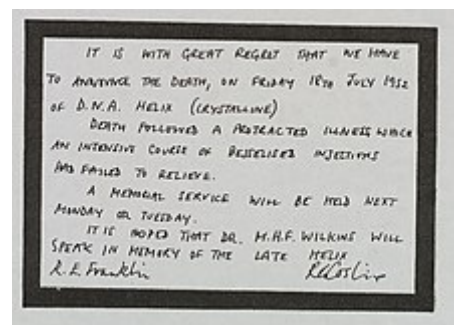 IT IS WITH GREAT REGRET THAT WE HAVE
TO ANNOUNCE THE DEATH, ON FRIDAY 18TH JULY 1952
OF D.N.A. HELIX (CRYSTALLINE)
DEATH FOLLOWED A PROTRACTED ILLNESS WHICH
AN INTENSIVE COURSE OF BESSELISED INJECTIONS
HAD FAILED TO RELIEVE.
A MEMORIAL SERVICE WILL BE HELD NEXT
MONDAY OR TUESDAY.
IT IS HOPED THAT DR. M.H.F. WILKINS WILL
SPEAK IN MEMORY OF THE LATE HELIX
R. E. Franklin R G Gosling